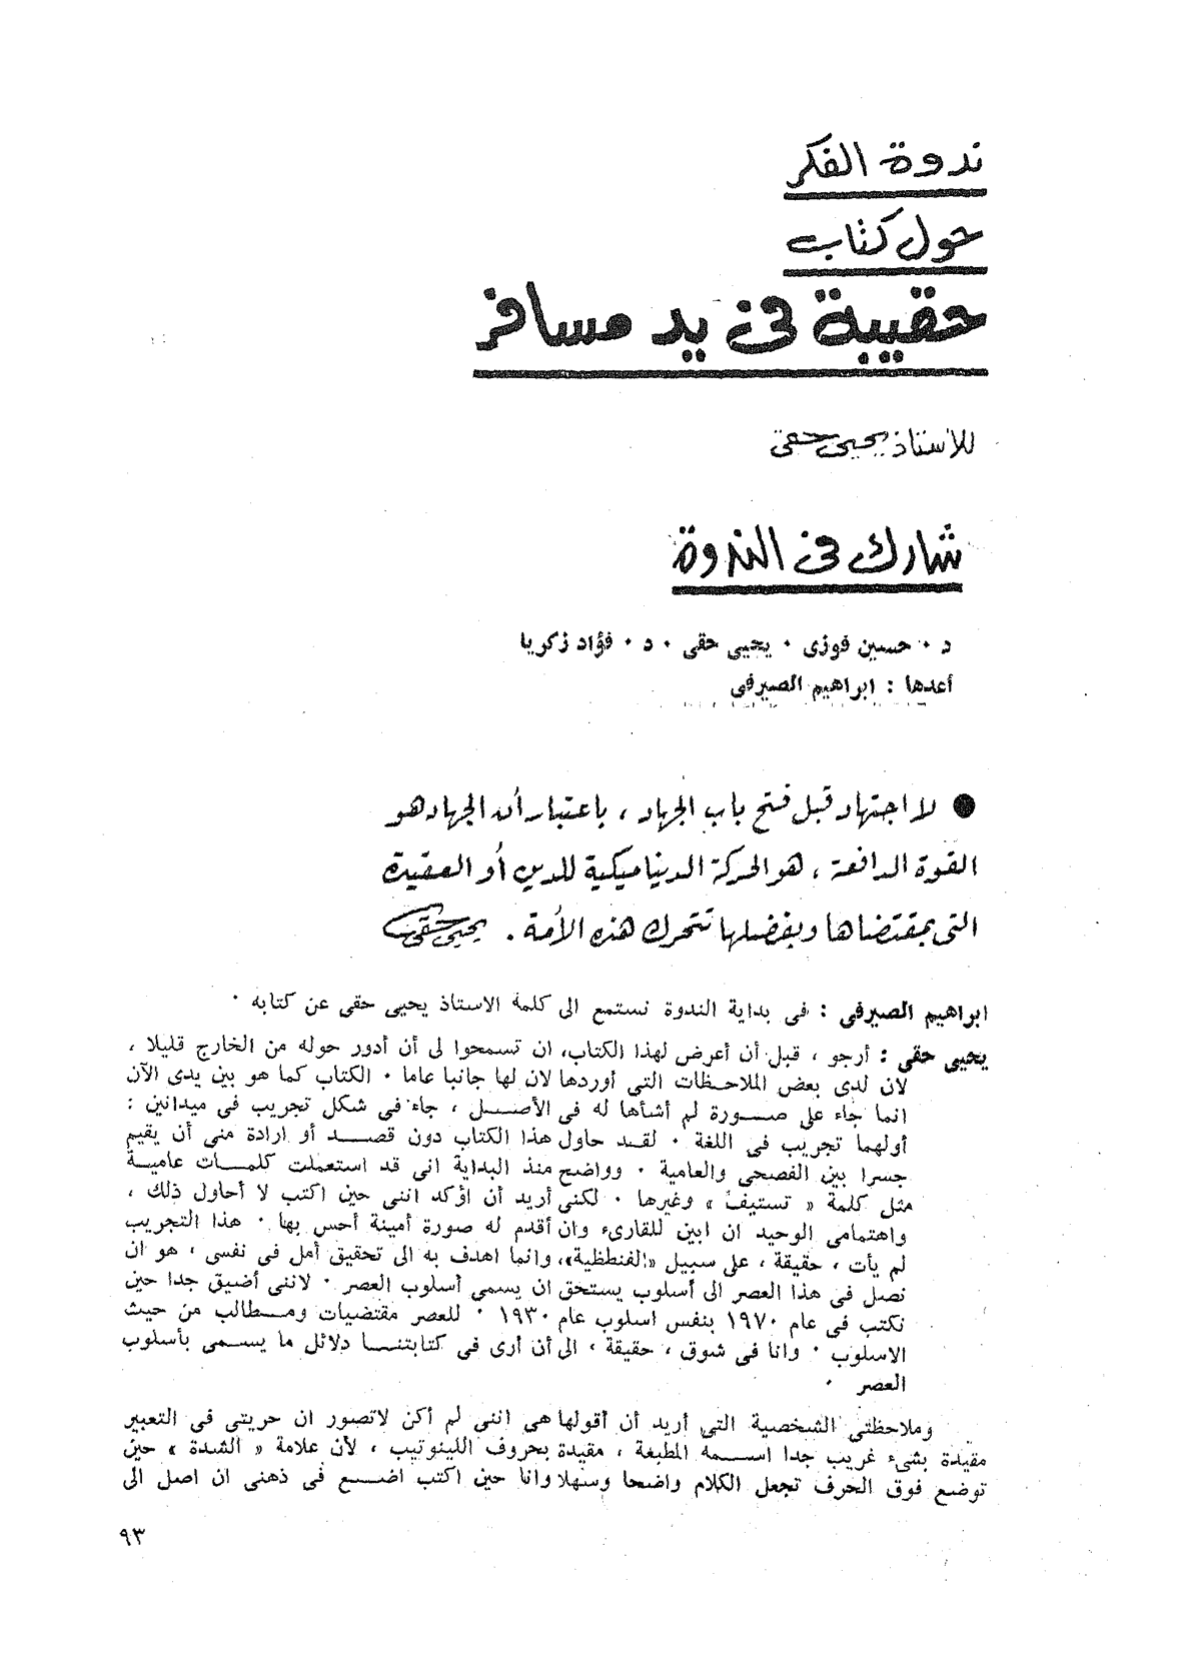 ندوة الفكر
حول كتاب
حقيبة فى يد مسافر
للأستاذ يحيى حقى
شارك فى الندوة
د ٠ حسين فوزى ٠ يحيى حقى ٠ د ٠ فؤاد زكريا
أعدها : ابراهيم الصيرفى
● لا اجتهاد قبل فتح باب الجهاد ، باعتبار أن الجهاد هو
القوة الدافعة ، هو الحركة الديناميكية للدين أو العقيدة
التى بمقتضاها وبفضلها تتحرك هذه الأمة . يحيى حقى
ابراهيم الصيرفى : فى بداية الندوة نستمع الى كلمة الاستاذ يحيى حقى عن كتابه ٠
يحيى حقى : أرجو ، قبل أن أعرض لهذا الكتاب، ان تسمحوا لى أن أدور حوله من الخارج قليلا ،
لان لدى بعض الملاحظات التى أوردها لان لها جانبا عاما ٠ الكتاب كما هو بين يدى الآن
انما جاء على صورة لم أشأها له فى الأصل ، جاء فى شكل تجريب فى ميدانين :
أولهما تجريب فى اللغة ٠ لقد حاول هذا الكتاب دون قصد أو ارادة منى أن يقيم
جسرا بين الفصحى والعامية ٠ وواضح منذ البداية انى قد استعملت كلمات عامية
مثل كلمة « تستيف » وغيرها ٠ لكنى أريد أن اؤكد اننى حين اكتب لا أحاول ذلك ،
واهتمامى الوحيد ان ابين للقارىء وان أقدم له صورة أمينة أحس بها ٠ هذا التجريب
لم يأت ، حقيقة ، على سبيل «الفنطظية»، وانما اهدف به الى تحقيق أمل فى نفسى ، هو ان
نصل فى هذا العصر الى أسلوب يستحق ان يسمى أسلوب العصر ٠ لاننى أضيق جدا حين
نكتب فى عام ١٩٧٠ بنفس اسلوب عام ١٩٣٠ ٠ للعصر مقتضيات ومطالب من حيث
الاسلوب ٠ وانا فى شوق ، حقيقة ، الى أن أرى فى كتابتنا دلائل ما يسمى بأسلوب
العصر ٠
وملاحظتى الشخصية التى أريد أن أقولها هى اننى لم أكن لاتصور ان حريتى فى التعبير
مقيدة بشىء غريب جدا اسمه المطبعة ، مقيدة بحروف اللينوتيب ، لأن علامة « الشدة » حين
توضع فوق الحرف تجعل الكلام واضحا وسهلا وانا حين اكتب اضع فى ذهنى ان اصل الى
٩٣